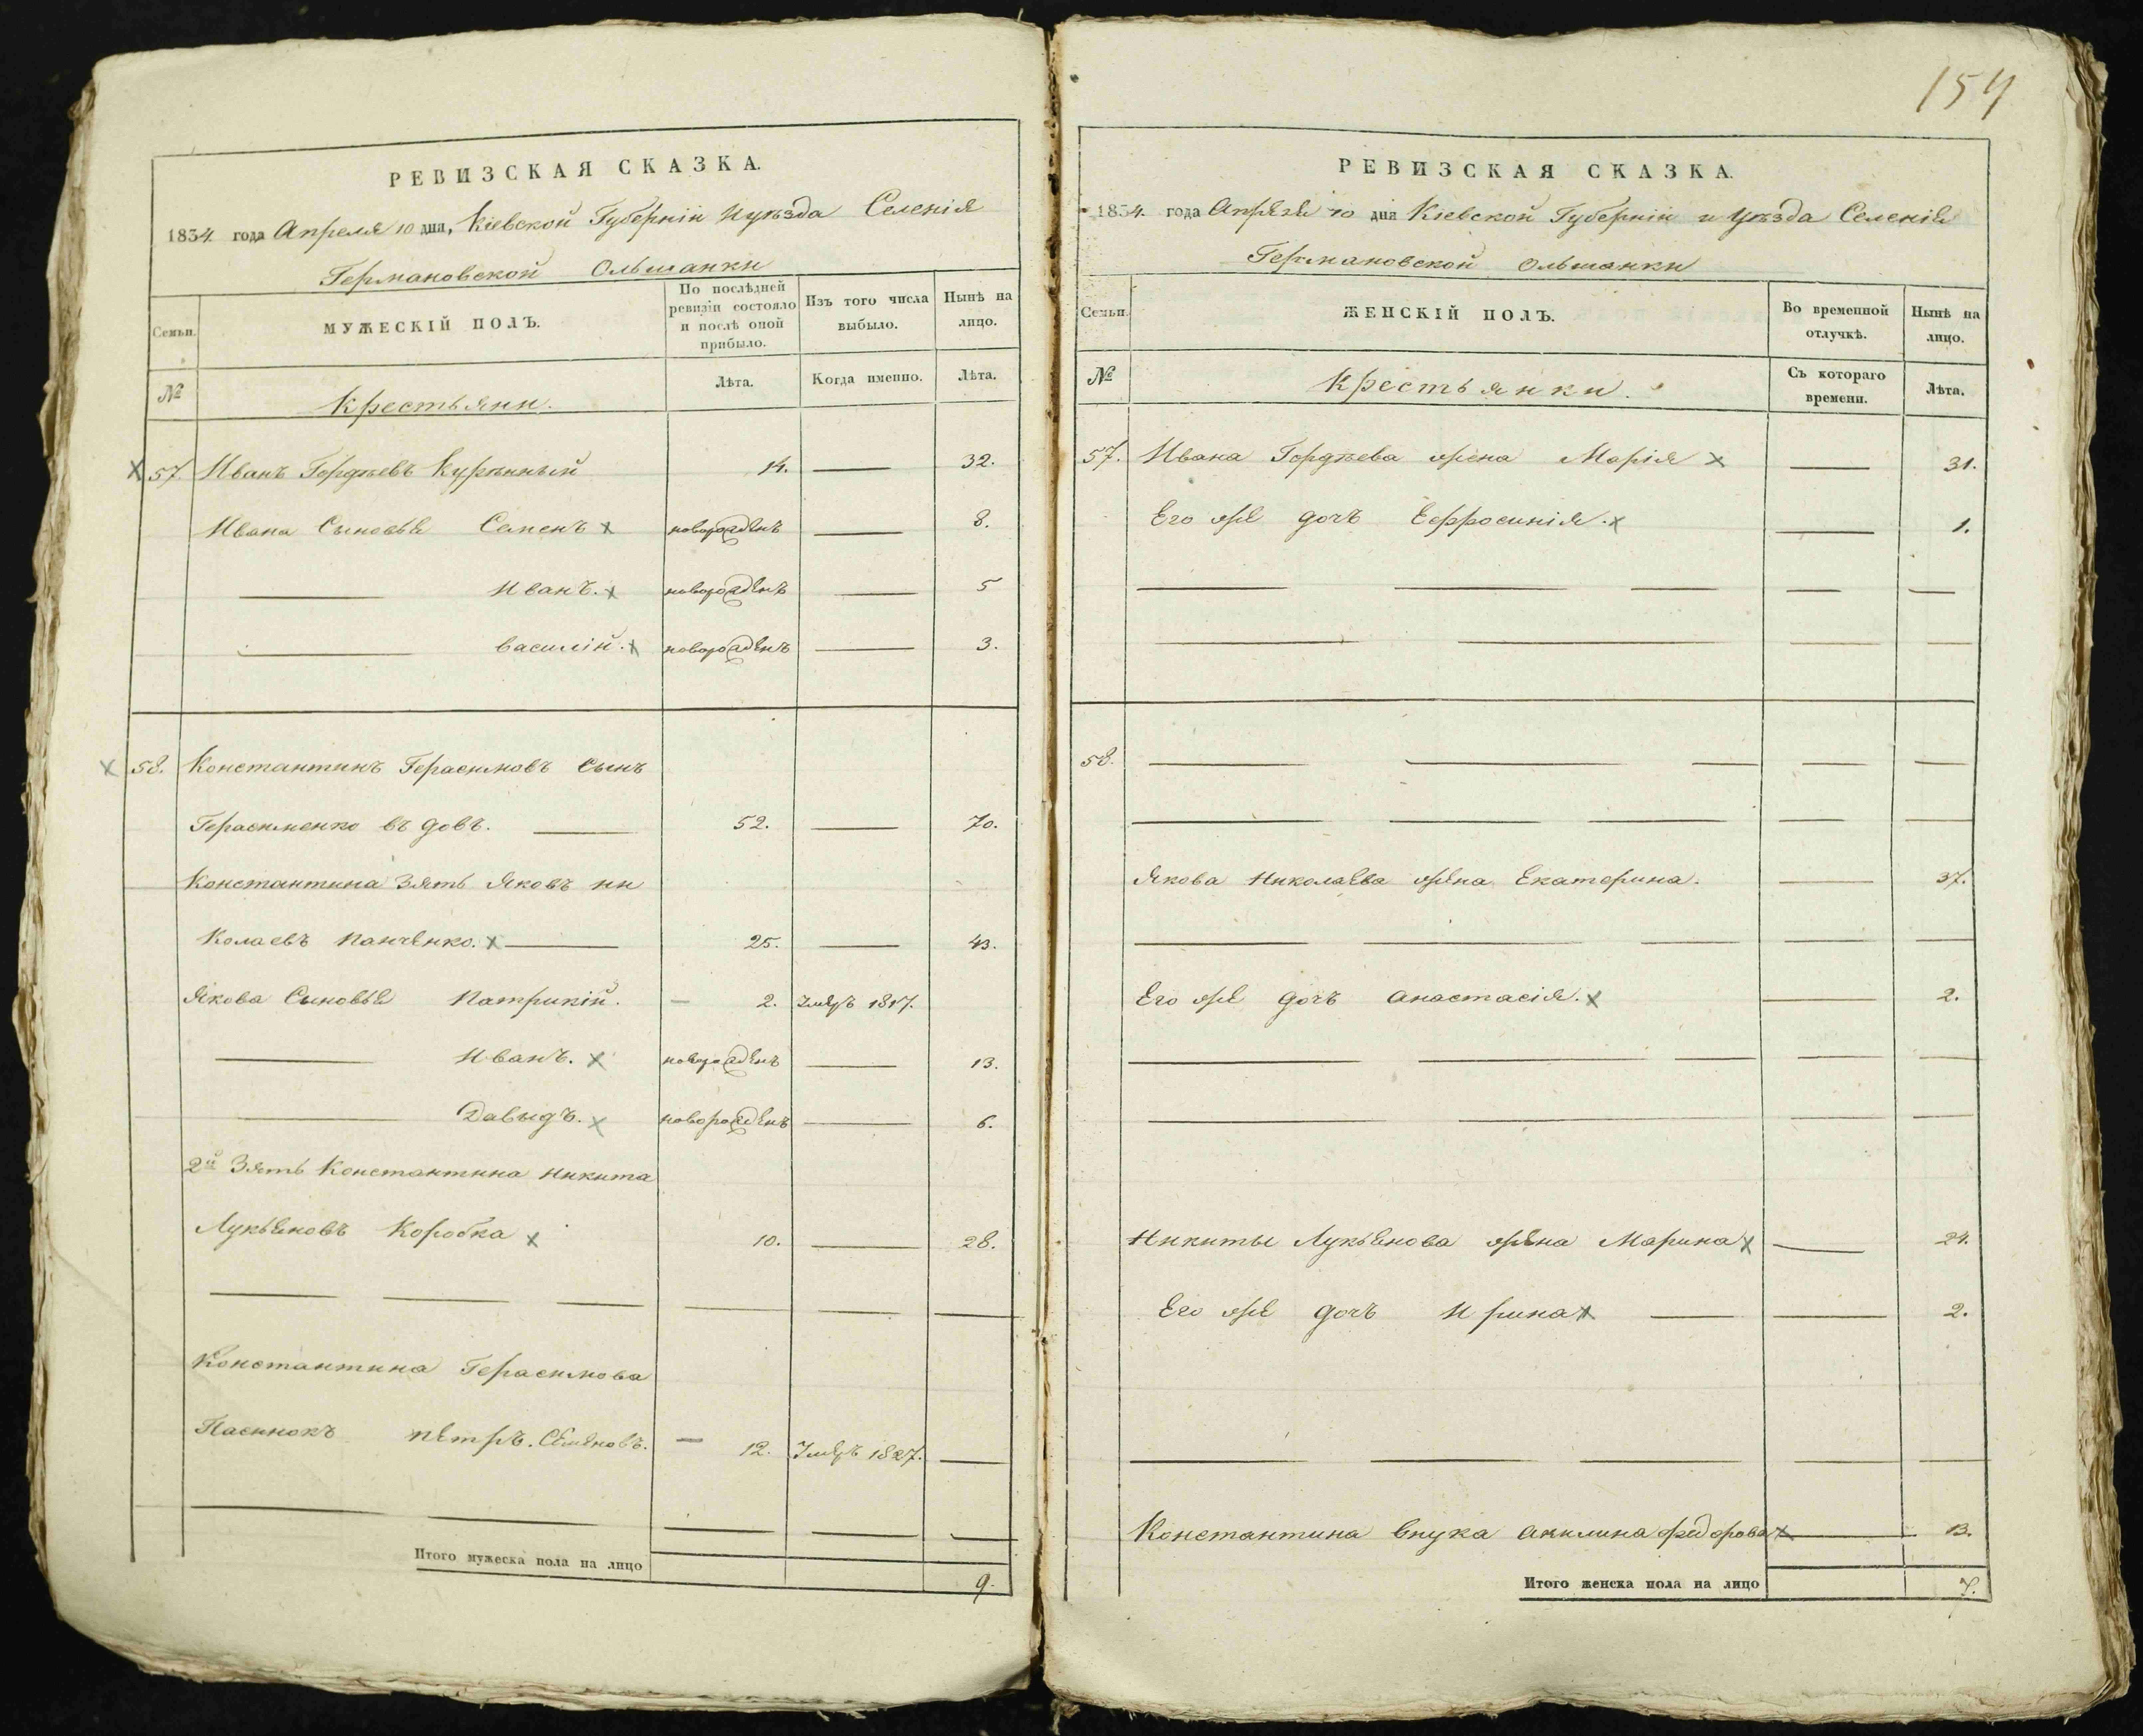 154
РЕВИЗСКАЯ СКАЗКА.
1834 года Апреля 10 дня, Кіевской Губерніи и уѣзда Селенія
Германовской Ольшанки
Семьи.
МУЖЕСКІЙ ПОЛЪ.
По послѣдней ревизіи состояло и послѣ оной прибыло.
Изъ того числа выбыло.
Нынѣ на лицо.
№
Крестьяни.
Лѣта.
Когда именно.
Лѣта.
x 57. Иванъ Гордѣевъ Курѣнный 14. — 32.
Ивана Сыновья Семенъ x новорожденъ — 8.
— Иванъ. x новорожденъ — 5
— Василій. x новорожденъ — 3.
x 58. Константинъ Герасимовъ Сынъ
Герасименко въ довъ. — 52. — 70.
Константина Зять Яковъ ни
Колаевъ Панченко. x — 25. — 43.
Якова Сыновья Патрикій. — 2. Умеръ 1817.
— Иванъ. x новорожденъ — 13.
— Давыдъ. x новорожденъ — 6.
2й Зять Константина Никита
Лукьяновъ Коробка x 10. — 28.
Константина Герасимова
Пасинокъ Петръ. Семеновъ. — 12. Умеръ 1827. —
Итого мужеска пола на лицо 9.
РЕВИЗСКАЯ СКАЗКА.
1834. года Апреля 10 дня Кіевской Губерніи и уѣзда Селенія
Германовской Ольшанки
Семьи.
ЖЕНСКІЙ ПОЛЪ.
Во временной отлучкѣ.
Нынѣ на лицо.
№
Крестьянки.
Съ котораго времени.
Лѣта.
57. Ивана Гордѣева жена Марія x — 31.
Его же дочъ Ефросинія. x — 1.
58.
Якова Николаева жена Екатерина. — 37.
Его же дочъ Анастасія. x — 2.
Никиты Лукьянова жена Марина x — 24.
Его же дочъ Ирина x — — 2.
Константина внука Акилина Федорова x — 13.
Итого женска пола на лицо 7.